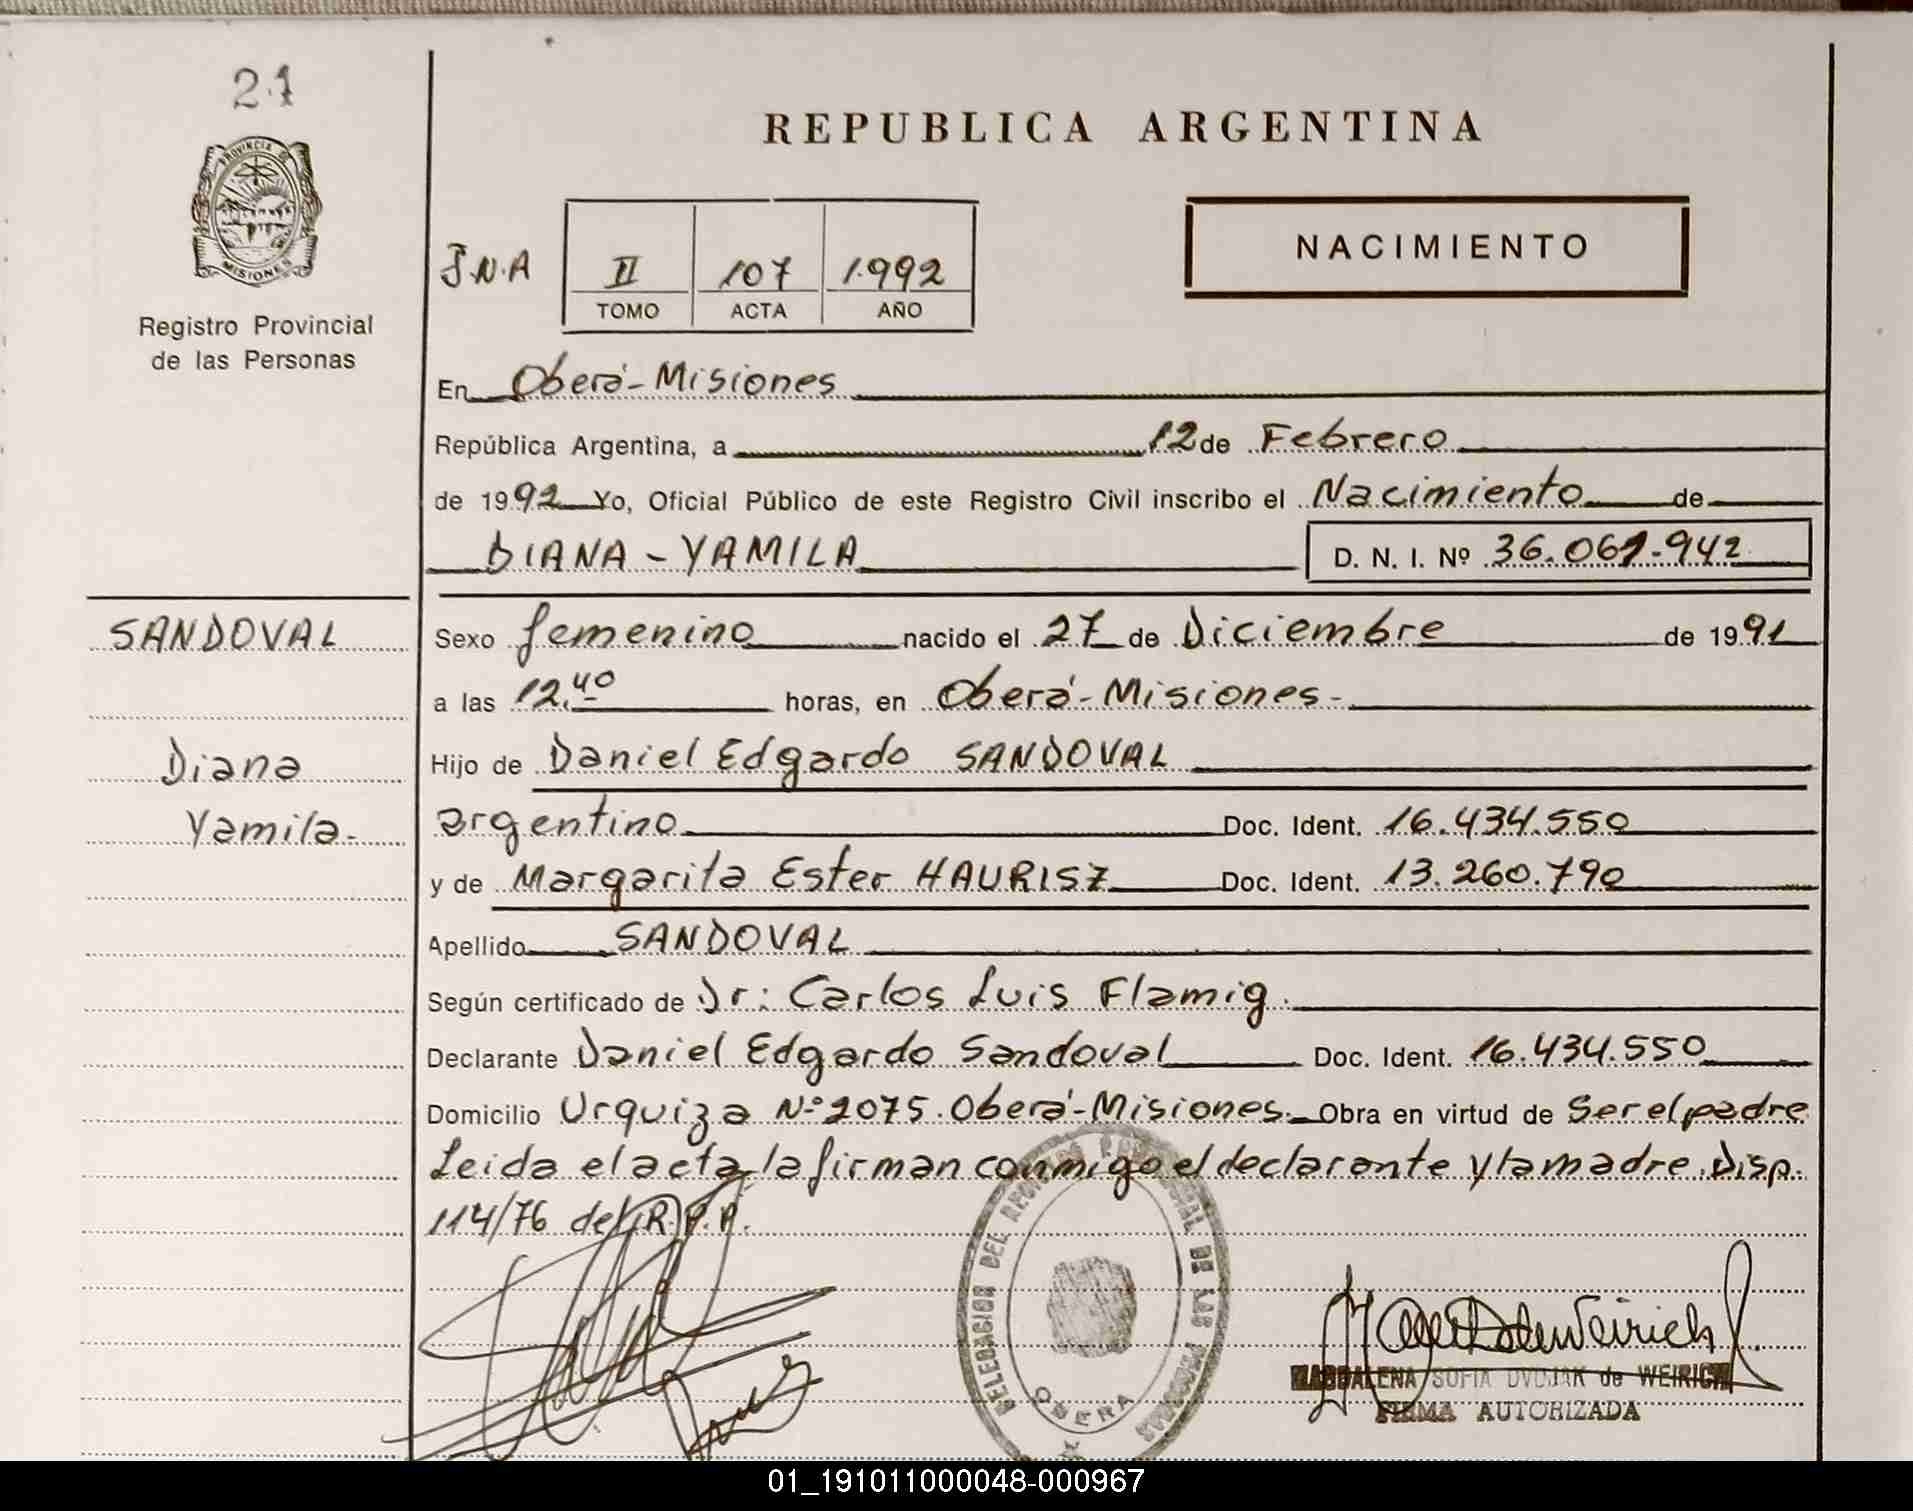 21
PROVINCIA DE
MISIONES
Registro Provincial
de las Personas
REPUBLICA ARGENTINA
NACIMIENTO
J.N.A II 107 1992
TOMO ACTA AÑO
En Oberá-Misiones
República Argentina, a 12 de Febrero
de 1992 Yo, Oficial Público de este Registro Civil inscribo el Nacimiento de
DIANA - YAMILA D. N. I. Nº 36.061.942
SANDOVAL
Diana
Yamila.
Sexo femenino nacido el 27 de Diciembre de 1991
a las 12.40 horas, en Oberá-Misiones-
Hijo de Daniel Edgardo SANDOVAL
argentino Doc. Ident. 16.434.550
y de Margarita Ester HAURISZ Doc. Ident. 13.260.790
Apellido SANDOVAL
Según certificado de Dr: Carlos Luis Flamig.
Declarante Daniel Edgardo Sandoval Doc. Ident. 16.434.550
Domicilio Urquiza Nº 2075. Oberá-Misiones. Obra en virtud de ser el padre
Leida el acta, la firman conmigo el declarante y la madre. Disp.
114/76 del R.P.P.
DELEGACION DEL REGISTRO PROVINCIAL DE LAS PERSONAS
OBERA
MAGDALENA SOFIA DVOJAK de WEIRICH
FIRMA AUTORIZADA
01_191011000048-000967